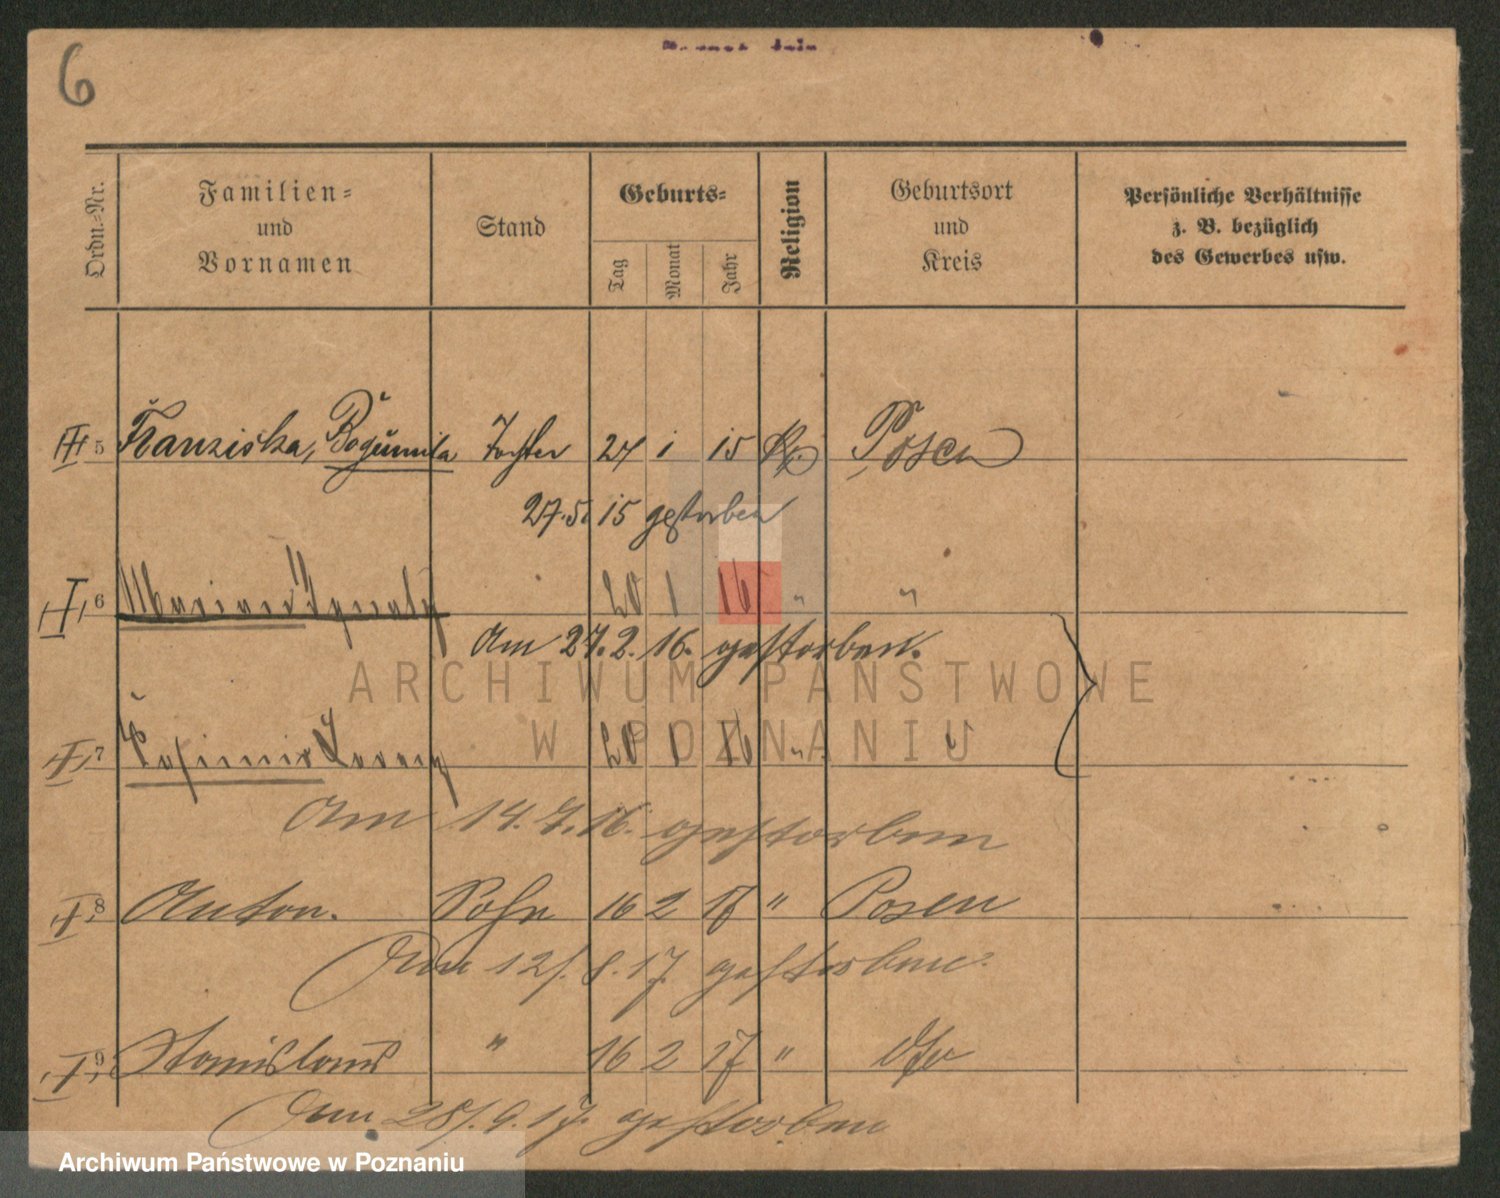 6
Ordn.-Nr.
Familien-
und
Vornamen
Stand
Geburts-
Tag
Monat
Jahr
Religion
Geburtsort
und
Kreis
Persönliche Verhältnisse
z. B. bezüglich
des Gewerbes usw.
5 Franziska, Bogumila Tochter 27 1 15 Posen
27.5. 15 gestorben
6 Marian Ignatz 20 1 16 " "
Am 27.2.16. gestorben.
ARCHIWUM PAŃSTWOWE
W POZNANIU
7 Kasimir 20 1 16 " "
Am 14.7.16. gestorben
8 Anton. Sohn 16 2 17 " Posen
Am 12/.8.17. gestorben.
9 Stanislaus " 16 2 17 " dto
Am 28/.9.17. gestorben
Archiwum Państwowe w Poznaniu